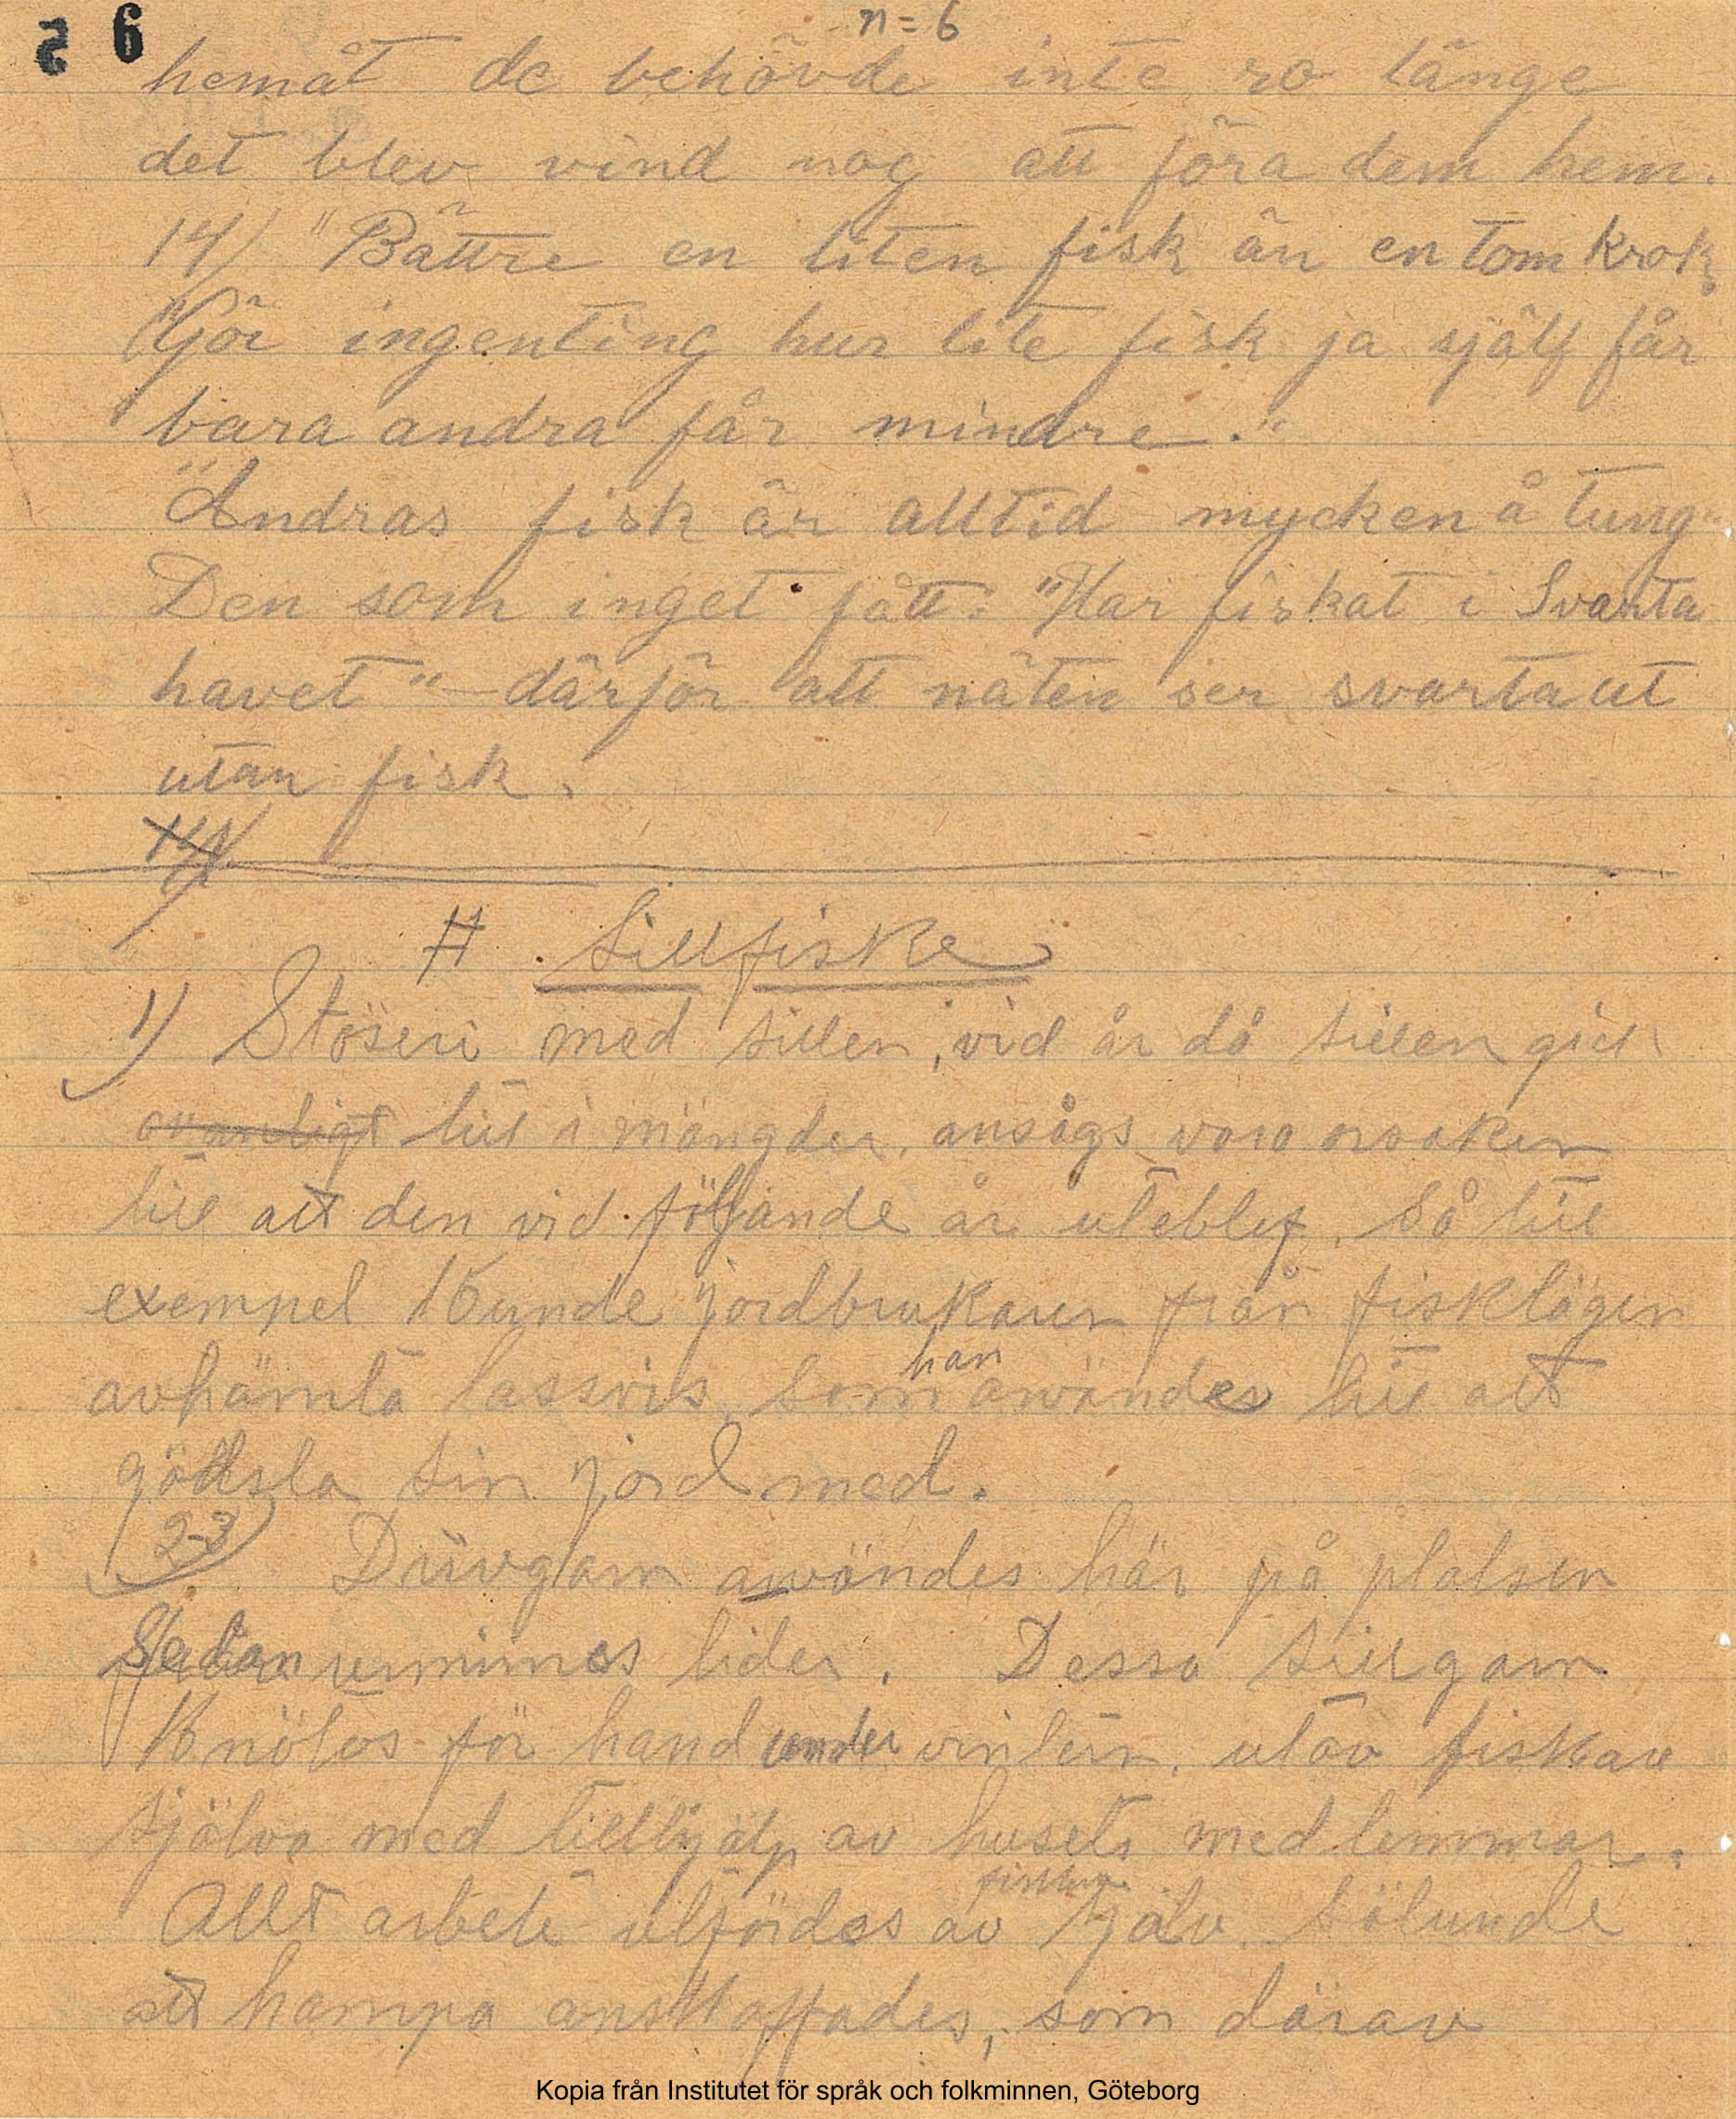 5 6
n=6
hemåt de behövde inte ro länge
det blev vind nog att föra dem hem.
14/ "Bättre en liten fisk än en tom krok
"Gör ingenting hur lite fisk ja själf får
bara andra får mindre."
"Andras fisk är alltid mycken å tung"
Den som inget fått: "Har fiskat i Svarta
havet" – därför att näten ser svarta ut
utan fisk.
H. Sillfiske
1) Slöseri med sillen, vid år då sillen gick
ovanligt till i mängder, ansågs vara orsaken
till att den vid följande år uteblef. Så till
exempel kunde jordbrukaren från fisklägen
avhämta lassvis, som han användes till att
gödsla sin jord med.
2-3) Drivgarn användes här på platsen
Sedan urminnes tider. Dessa sillgarn
Knötos för hand under vintern, utav fiskare
själva med tillhjälp av husets medlemmar.
Allt arbete utfördes av fiskare själv. Sålunde
att hampa anskaffades, som därav
Kopia från Institutet för språk och folkminnen, Göteborg